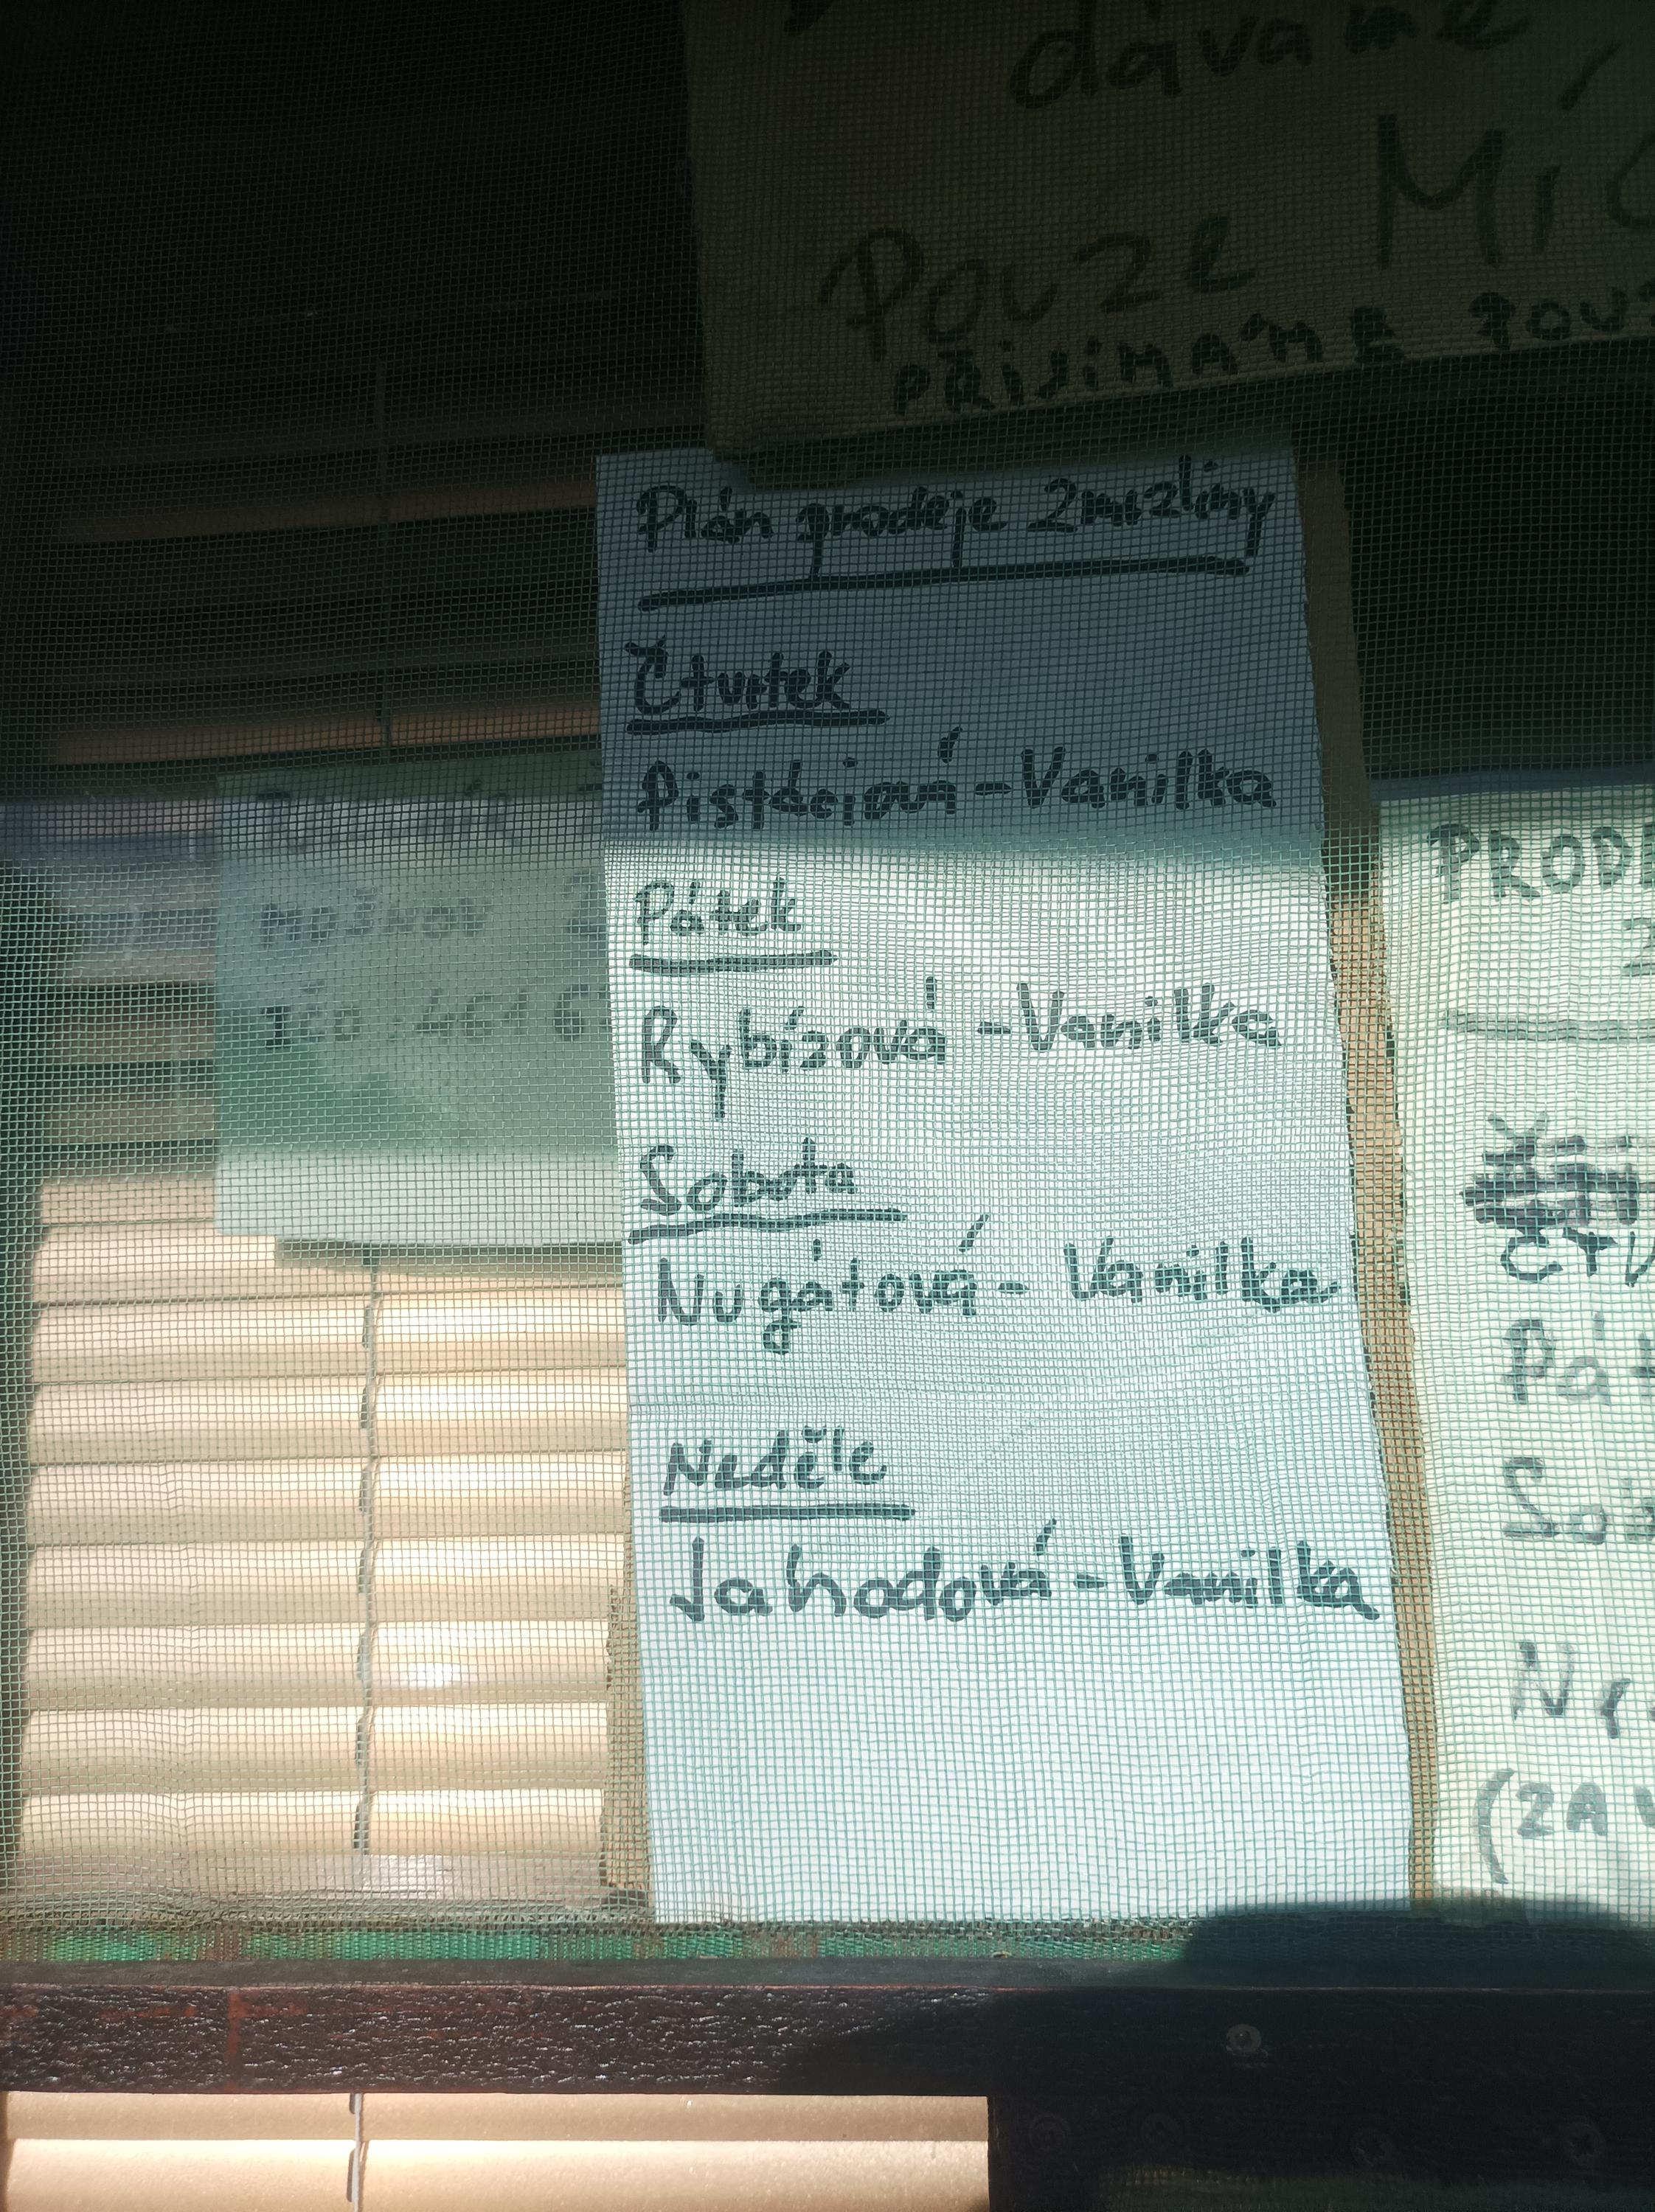 dáváme
Pouze
PŘIJÍMÁME
Plán prodeje Zmrzliny
Čtvrtek
Pistáciová - Vanilka
Pátek
Rybízová - Vanilka
Sobota
Nugátová - Vanilka
Neděle
Jahodová - Vanilka
MOŠNOV 2
IČO: 4616
PROD
ČTV
Pát
Sob
Ne
(ZAV